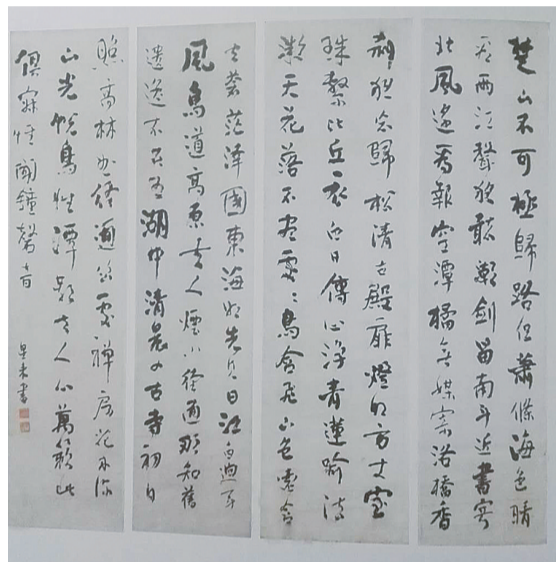 楚山不可極歸路但蕭條海色晴
看雨江聲夜聽潮劍留南斗近書寄
北風遙為報空潭橘無媒寄洛橋香
刹夜忘歸松清古殿扉燈明方丈室
珠繫比丘衣白日傳心淨青蓮喻法
微天花落不盡處〻鳥含飛山色遠含
空蒼茫澤國東海明先見日江白迥聞
風鳥道高原去人煙小徑通那知舊
遺逸不在五湖中清晨入古寺初日
照高林曲徑通幽處禪房花木深
山光悅鳥性潭影空人心萬籟此
俱寂惟聞鐘磬音
書